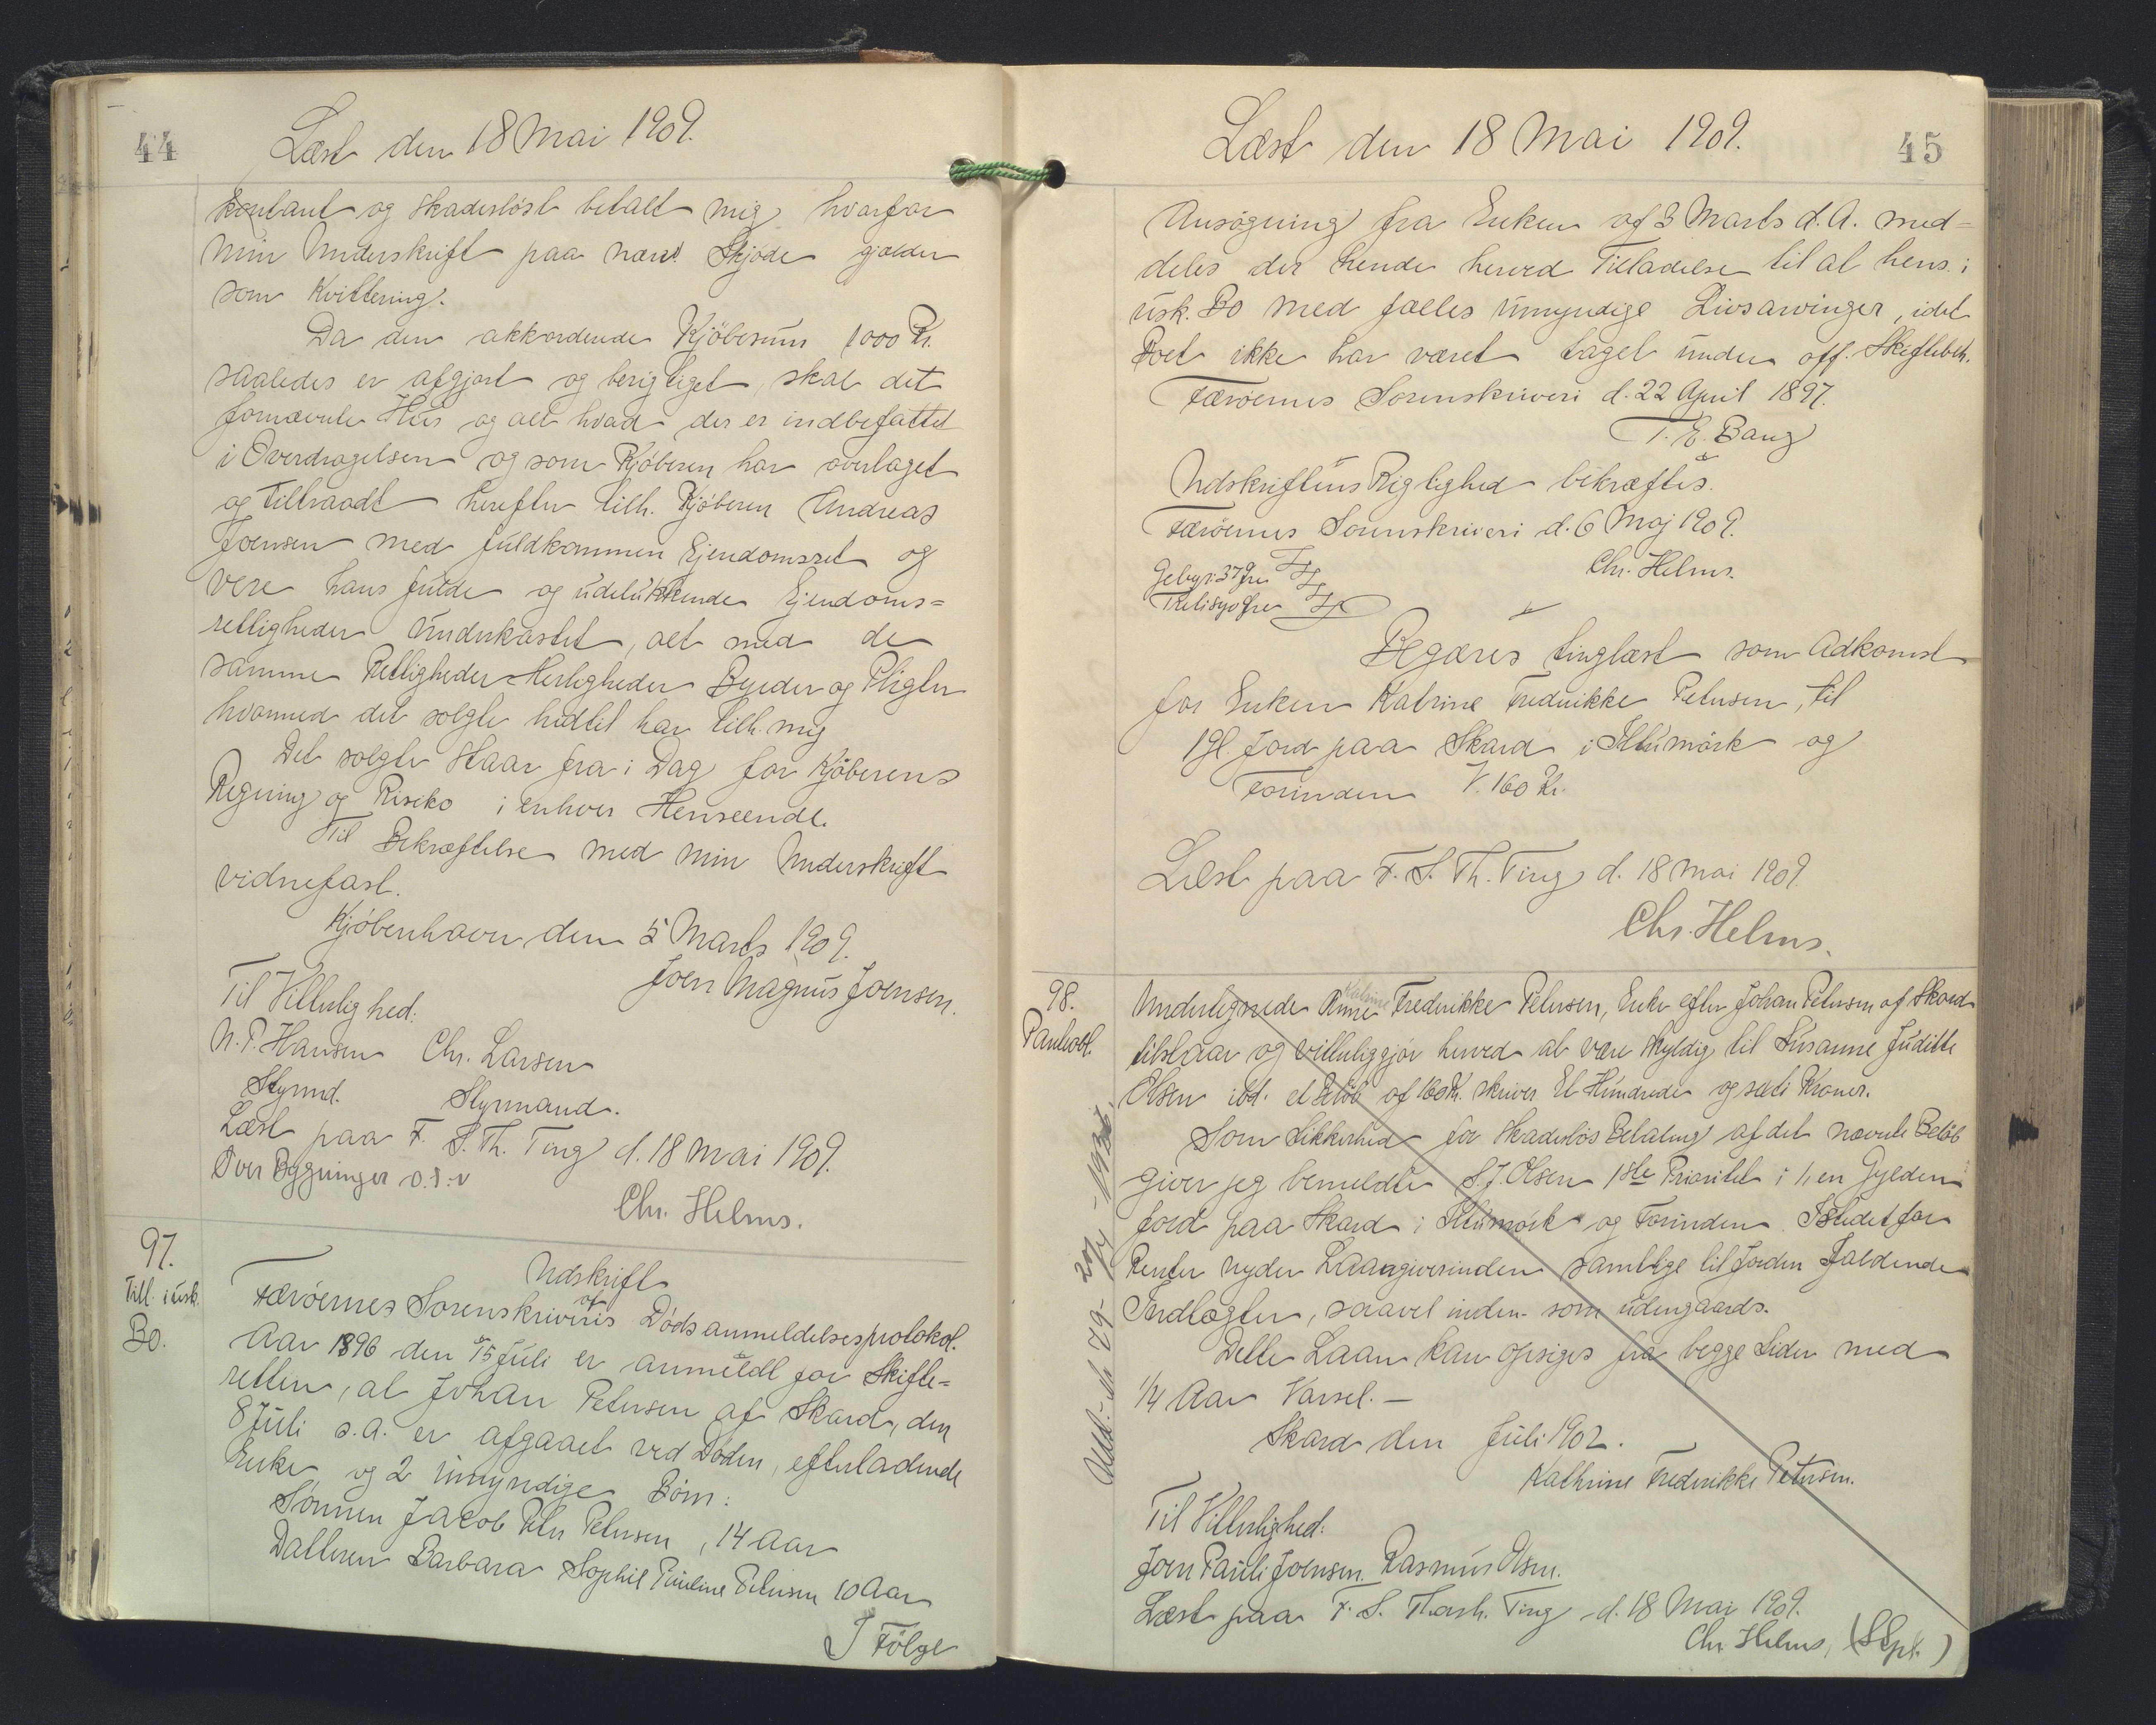 44
Læst den 18 Mai 1909.
kontant og skadesløst betalt mig hvorfor
min Underskrift paa nærv. Skjøde gjælder
som Kvittering.
Da den akkorderede Kjöbesum 1000 Kr.
saaledes er afgjort og berigtiget, skal det
fornævnte Hus og alt hvad der er indbefattet
i Overdragelsen og som Kjöberen har overtaget
og tiltraadt herefter tilh. Kjöberen Andreas
Joensen med fuldkommen Ejendomsret og
være hans fulde og udelukkende Ejendoms=
rettigheder underkastet, alt med de
samme Rettigheder Herligheder Byrder og Pligter
hvormed det solgte hidtil har tilh. mig
Det solgte staar fra i Dag for Kjöberens
Regning og Risiko i enhver Henseende.
Til Bekræftelse med min Underskrift
vidnefast.
Kjöbenhavn, den 5 Marts 1909.
Joen Magnus Joensen.
Til Vitterlighed:
N.P. Hansen Chr. Larsen
Styrmd. Styrmand.
Læst paa F. S. Th. Ting d. 18 Mai 1909.
Over Bygninger o.s.v
Chr. Helms.
97.
Till. i usk.
Bo.
Udskrift
af
Færöernes Sorenskriveris Dödsanmeldelsesprotokol.
Aar 1896 den 15 Juli er anmeldt for Skifte=
retten, at Johan Petersen af Skard, den
8 Juli s.a. er afgaaet ved Döden, efterladende
Enke og 2 umyndige Börn:
Sönnen Jacob Peter Petersen, 14 Aar
Datteren Barbara Sophie Pauline Petersen 10 Aar
I Fölge
45
Læst den 18 Mai 1909.
Ansögning fra Enken af 3 Marts d.A. med=
deles der hende herved Tilladelse til at hens. i
usk. Bo med fælles umyndige Livsarvinger, idet
Boet ikke har været taget under off. Skiftebeh.
Færöernes Sorenskriveri d. 22 April 1897.
T. E. Bang
Udskriftens Rigtighed bekræftes.
Færöernes Sorenskriveri d. 6 Maj 1909.
Chr. Helms.
Begæres tinglæst som Adkomst
for Enken Katrine Fredrikke Petersen, til
1 gl. Jord paa Skard i Stumörk og
Forinden V. 160 Kr.
Læst paa F. S. Th. Ting d. 18 Mai 1909.
Chr. Helms.
98.
Pantobl.
Undertegnede Anne Katrine Frederikke Petersen, Enke efter Johan Petersen af Skard
tilstaar og vitterliggjör herved at være skyldig til Susanne Juditte
Olsen ibd. et Belöb af 160 Kr. skriver Et Hundrede og seksti Kroner.
Som Sikkerhed for skadeslös Betaling af det nævnte Belöb
giver jeg bemeldte S. J. Olsen 1ste Prioritet i 1, en Gylden
Jord paa Skard i Stumörk og Forinden. Istedet for
Renter nyder Laangiverinden samtlige til Jorden faldende
Indtægter, saavel inden- som udengaards.
Dette Laan kan opsiges fra begge Sider med
1/4 Aar Varsel. —
Skard den Juli 1902.
Kathrine Frederikke Petersen.
Til Vitterlighed:
Joen Pauli Joensen. Rasmus Olsen.
Læst paa F. S. Thorsh. Ting d. 18 Mai 1909.
Chr. Helms,